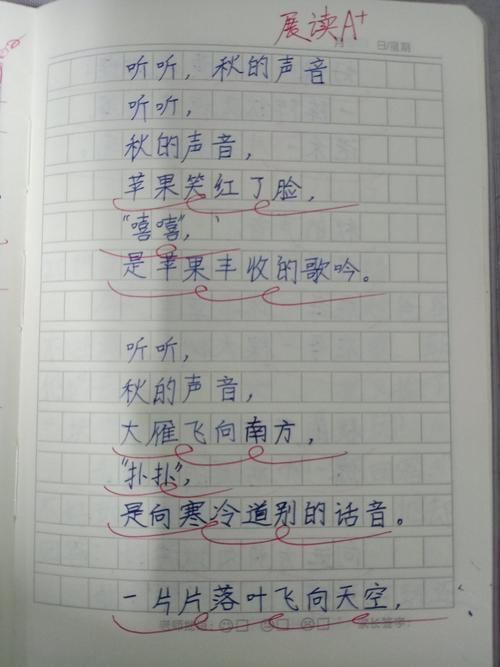 展读A+
日/星期
听听，秋的声音
听听，
秋的声音，
苹果笑红了脸，
“嘻嘻”，
是苹果丰收的歌吟。
听听，
秋的声音，
大雁飞向南方，
“扑扑”，
是向寒冷道别的话音。
一片片落叶飞向天空，
家长签字：